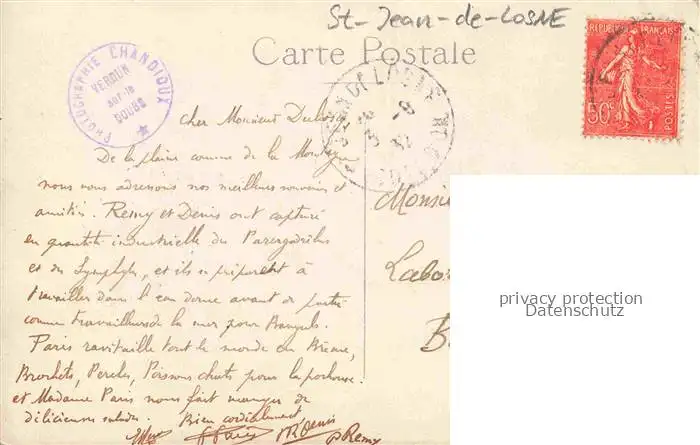 St-Jean-de-Losne
Carte Postale
PHOTOGRAPHIE CHANDIOUX
VERDUN
sur-le
DOUBS
REPUBLIQUE FRANÇAISE
50c
POSTES
Cher Monsieur
De la plaine comme de la Montagne
nous vous adressons nos meilleurs souvenirs et
amitiés. Remy et Denis ont capturé
en quantité industrielle du
et du Symphyle, et ils se préparent à
travailler dans l'eau douce avant de partir
comme travailleurs de la mer pour Banyuls.
Paris ravitaille tout le monde en Brème,
Brochets, Perches, Poissons chats pour la pochouse
et Madame Paris nous fait manger de
délicieuses salades. Bien cordialement
Paris Denis
Remy
Monsie
Labor
B
privacy protection
Datenschutz